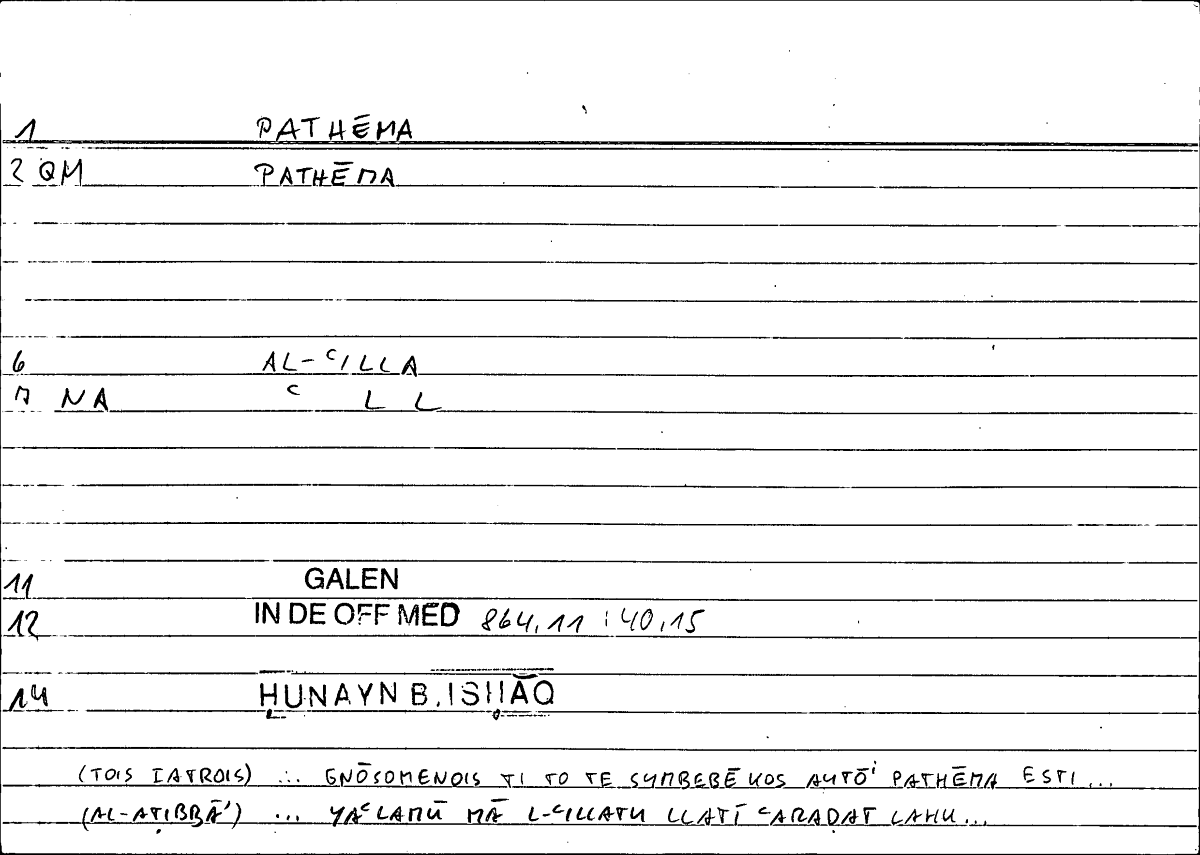 1 PATHĒMA
2 QM PATHĒMA
6 AL-ᶜILLA
7 NA ᶜ L L
11 GALEN
12 IN DE OFF MED 864,11 : 40,15
14 ḤUNAYN B. ISḤĀQ
(TOIS IATROIS) ... GNŌSOMENOIS TI TO TE SYMBEBĒKOS AUTŌⁱ PATHĒMA ESTI ...
(AL-AṬIBBĀʾ) ... YAᶜLAMŪ MĀ L-ᶜILLATU LLATĪ ᶜARAḌAT LAHU ...